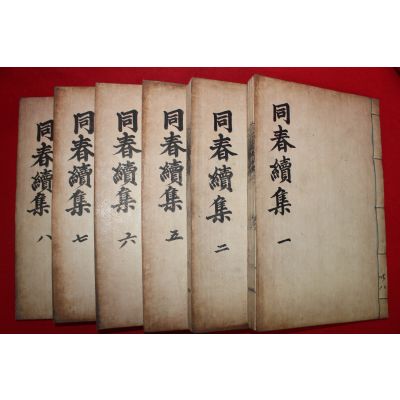 同春續集 一
同春續集 二
同春續集 五
同春續集 六
同春續集 七
同春續集 八